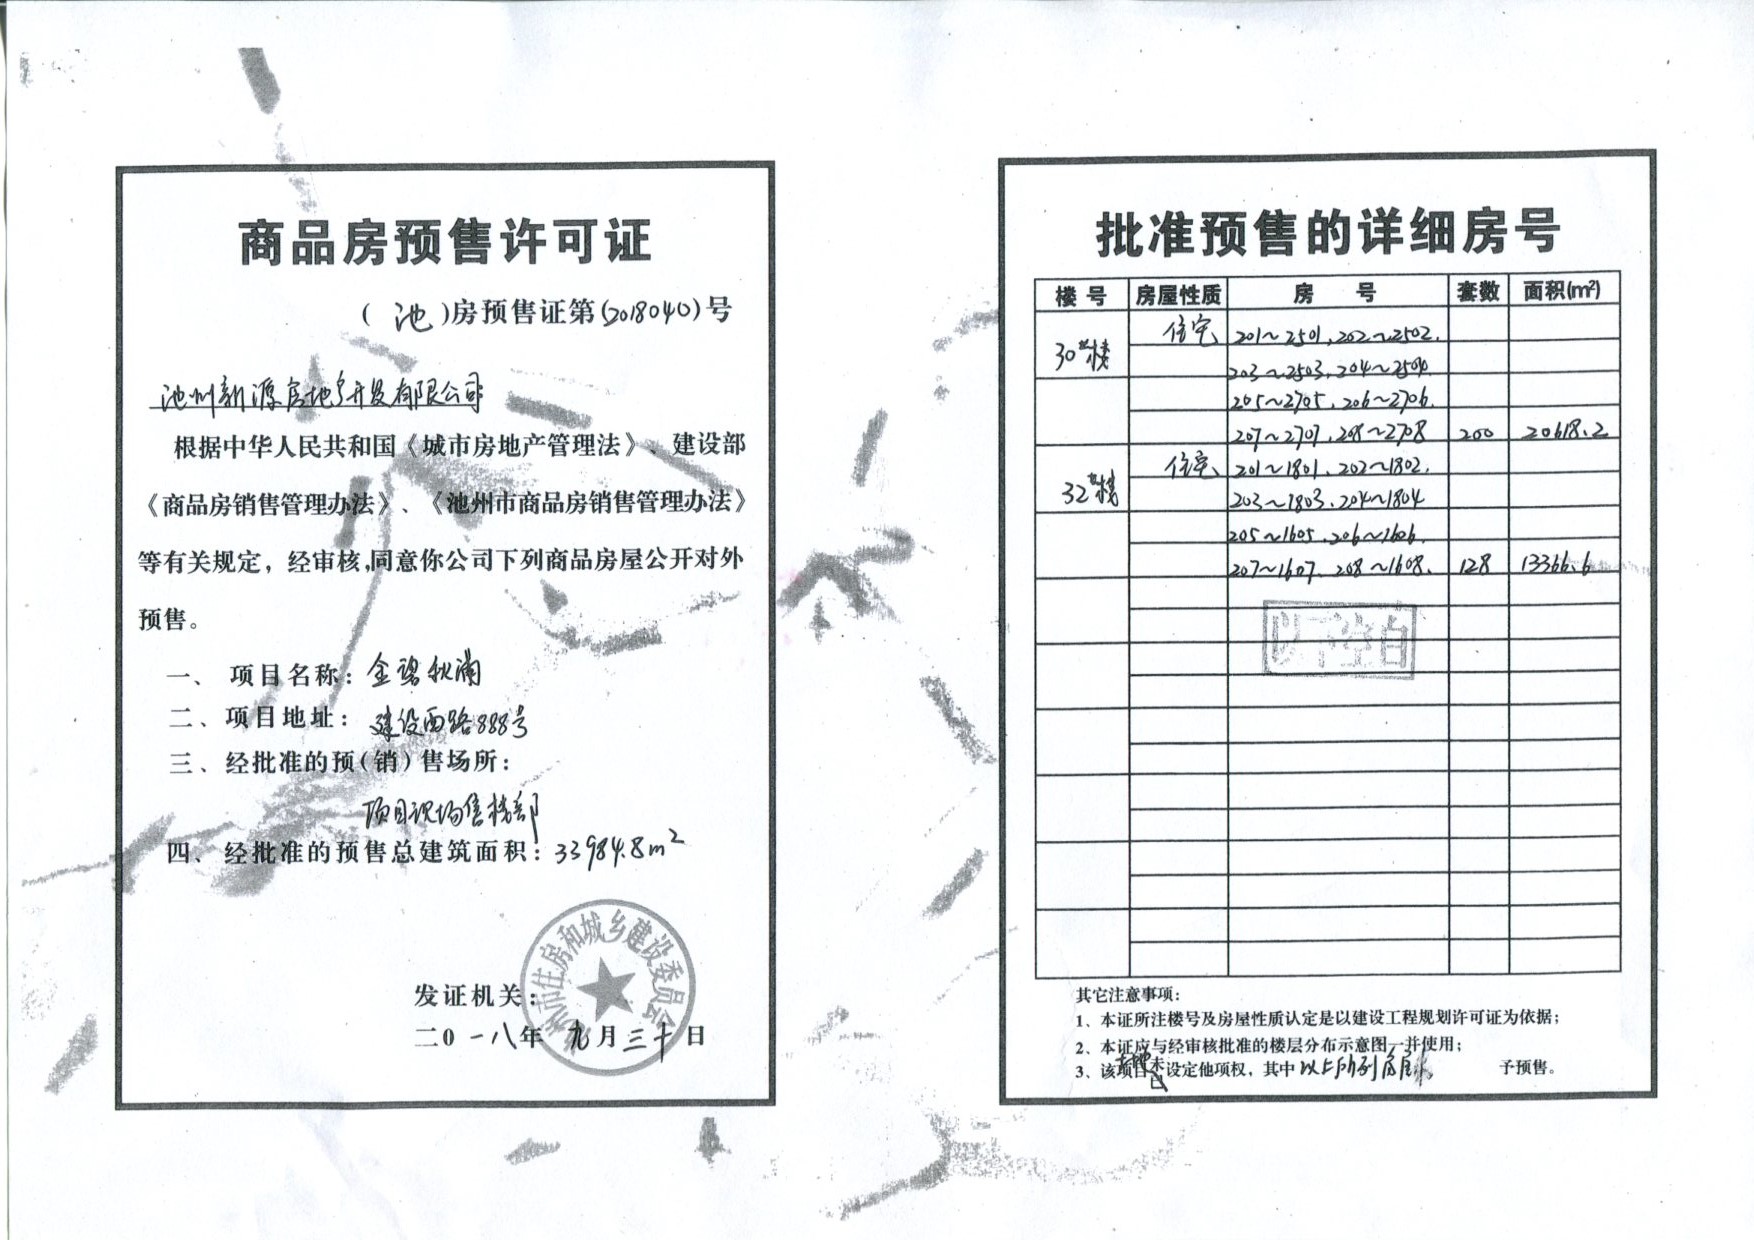 商品房预售许可证
(池)房预售证第(2018040)号
池州新源房地产开发有限公司
根据中华人民共和国《城市房地产管理法》、建设部
《商品房销售管理办法》、《池州市商品房销售管理办法》
等有关规定，经审核,同意你公司下列商品房屋公开对外
预售。
一、项目名称：金碧秋浦
二、项目地址：建设西路888号
三、经批准的预(销)售场所：
项目现场售楼部
四、经批准的预售总建筑面积：33984.8m²
州市住房和城乡建设委员会
发证机关：
二0一八年九月三十日
批准预售的详细房号
楼号 房屋性质 房号 套数 面积(m²)
30#楼 住宅 201~2501、202~2502、
203~2503、204~2504、
205~2705、206~2706、
207~2707、208~2708 200 20618.2
32#楼 住宅 201~1801、202~1802、
203~1803、204~1804
205~1605、206~1606、
207~1607、208~1608、 128 13366.6
以下空白
其它注意事项：
1、本证所注楼号及房屋性质认定是以建设工程规划许可证为依据；
2、本证应与经审核批准的楼层分布示意图一并使用；
3、该项目土地未已设定他项权，其中以上所列房屋 予预售。